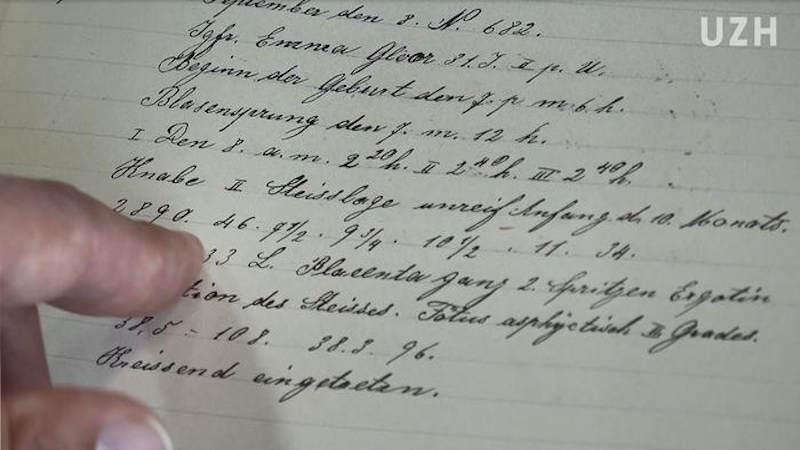 UZH
September den 8. № 682.
Igfr. Emma Gloor 31. J. II p. U.
Beginn der Geburt den 7. p. m. 6 h.
Blasensprung den 7. m. 12 h.
I Den 8. a. m. 2 20 h. II 2 40 h. III 2 40 h.
Knabe II Steisslage unreif Anfang d. 10. Monats.
2890. 46. 9 1/2. 9 3/4. 10 1/2. 11. 34.
33 L. Placenta ganz 2. Spritzen Ergotin
tion des Steisses. Fötus asphyctisch II Grades.
38,5 - 108. 38.3. 96.
Kreissend eingetreten.